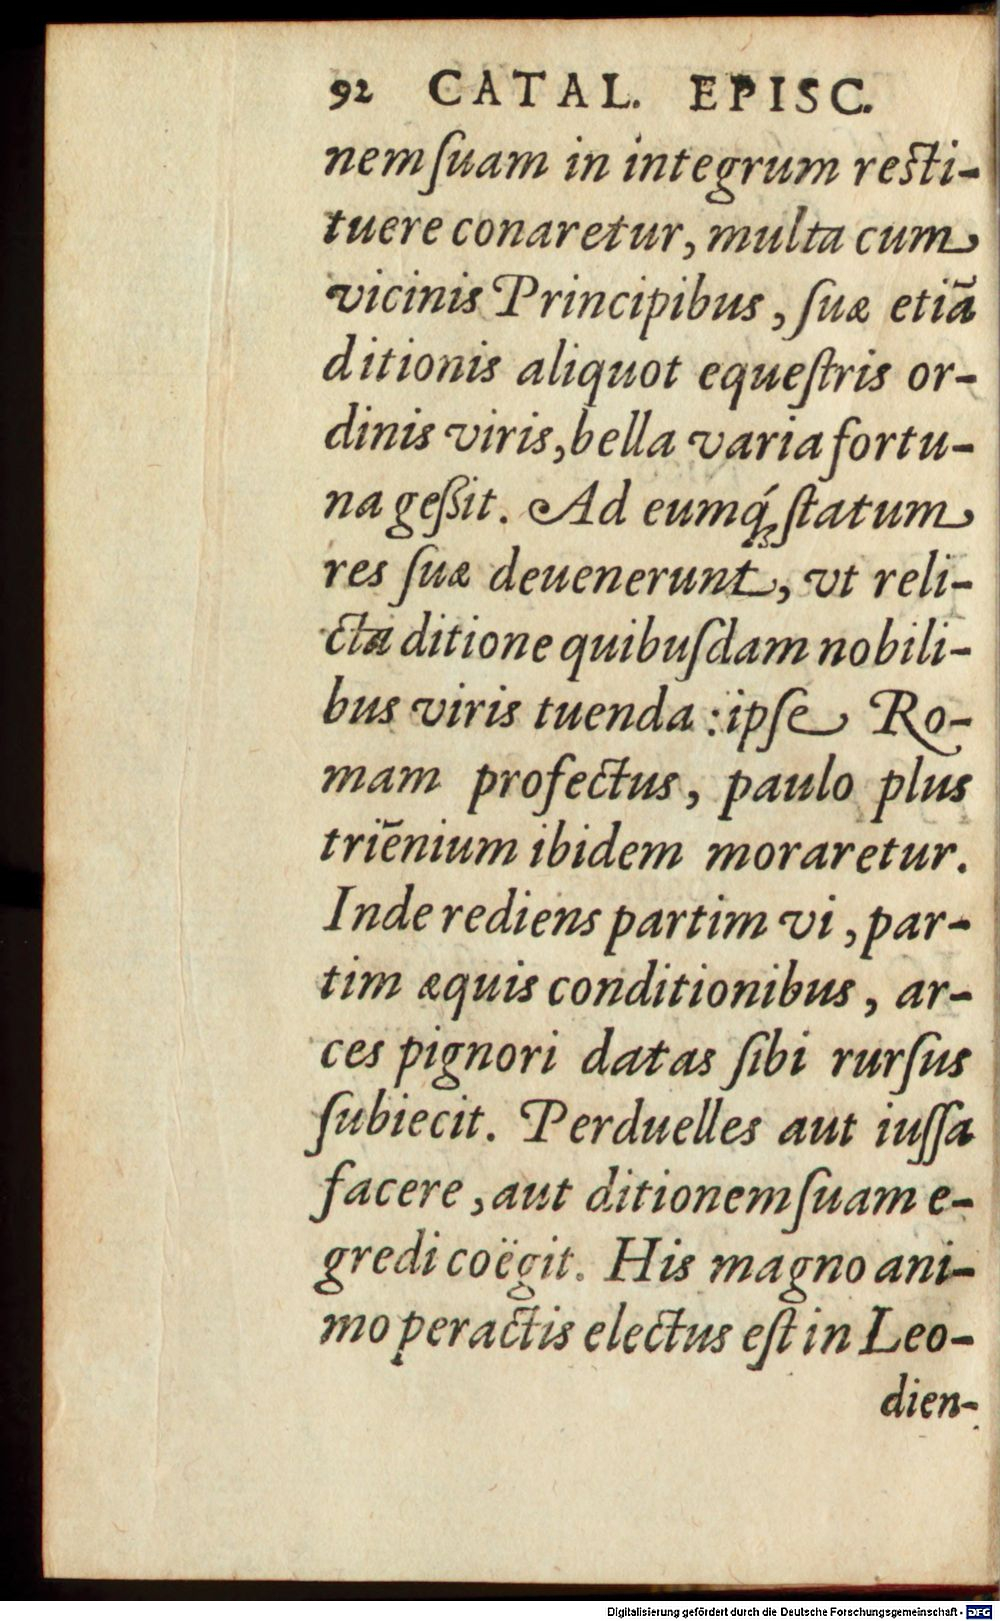 92 CATAL. EPISC.
nem ſuam in integrum reſti-
tuere conaretur, multa cum
vicinis Principibus, ſuæ etiā
ditionis aliquot equeſtris or-
dinis viris, bella varia fortu-
na geßit. Ad eumq́ꝫ ſtatum
res ſuæ deuenerunt, vt reli-
cta ditione quibuſdam nobili-
bus viris tuenda : ipſe Ro-
mam profectus, paulo plus
triēnium ibidem moraretur.
Inde rediens partim vi, par-
tim æquis conditionibus, ar-
ces pignori datas ſibi rurſus
ſubiecit. Perduelles aut iuſſa
facere, aut ditionem ſuam e-
gredi coëgit. His magno ani-
mo peractis electus eſt in Leo-
dien-
Digitalisierung gefördert durch die Deutsche Forschungsgemeinschaft - DFG